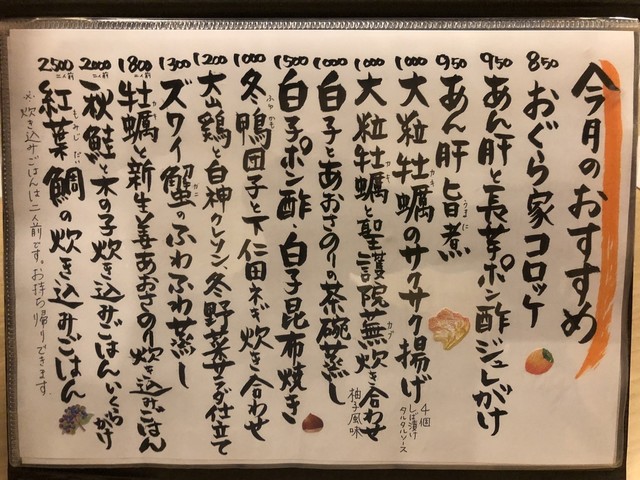 今月のおすすめ
850 おぐら家コロッケ
950 あん肝と長芋ポン酢ジュレがけ
950 あん肝旨煮
うまに
1000 大粒牡蠣のサクサク揚げ
カキ
4個
しば漬け
タルタルソース
1000 大粒牡蠣と聖護院蕪炊き合わせ
カキ
カブ
柚子風味
1000 白子とあおさのりの茶碗蒸し
1500 白子ポン酢・白子昆布焼き
1000 冬鴨団子と下仁田ネギ炊き合わせ
ふゆかも
1200 大山鶏と白神クレソン冬野菜サラダ仕立て
1300 ズワイ蟹のふわふわ蒸し
1800 二人前 牡蠣と新生姜あおさのり炊き込みごはん
カキ
2000 二人前 秋鮭と木の子炊き込みごはんいくらがけ
2500 二人前 紅葉鯛の炊き込みごはん
もみじだい
※炊き込みごはんは二人前です。お持ち帰りできます。